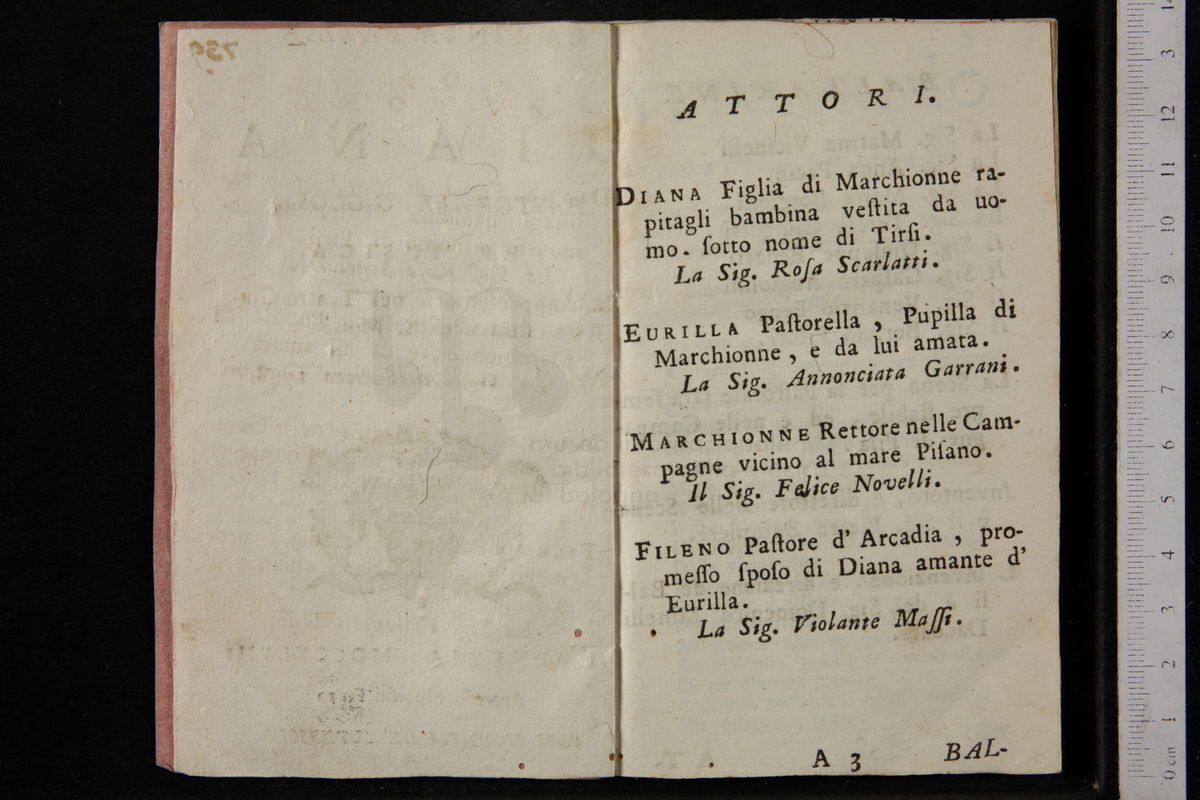 ATTORI.
DIANA Figlia di Marchionne ra-
pitagli bambina veſtita da uo-
mo. ſotto nome di Tirſi.
La Sig. Roſa Scarlatti.
EURILLA Paſtorella, Pupilla di
Marchionne, e da lui amata.
La Sig. Annonciata Garrani.
MARCHIONNE Rettore nelle Cam-
pagne vicino al mare Piſano.
Il Sig. Felice Novelli.
FILENO Paſtore d' Arcadia, pro-
meſſo ſpoſo di Diana amante d'
Eurilla.
La Sig. Violante Maſſi.
A 3 BAL-